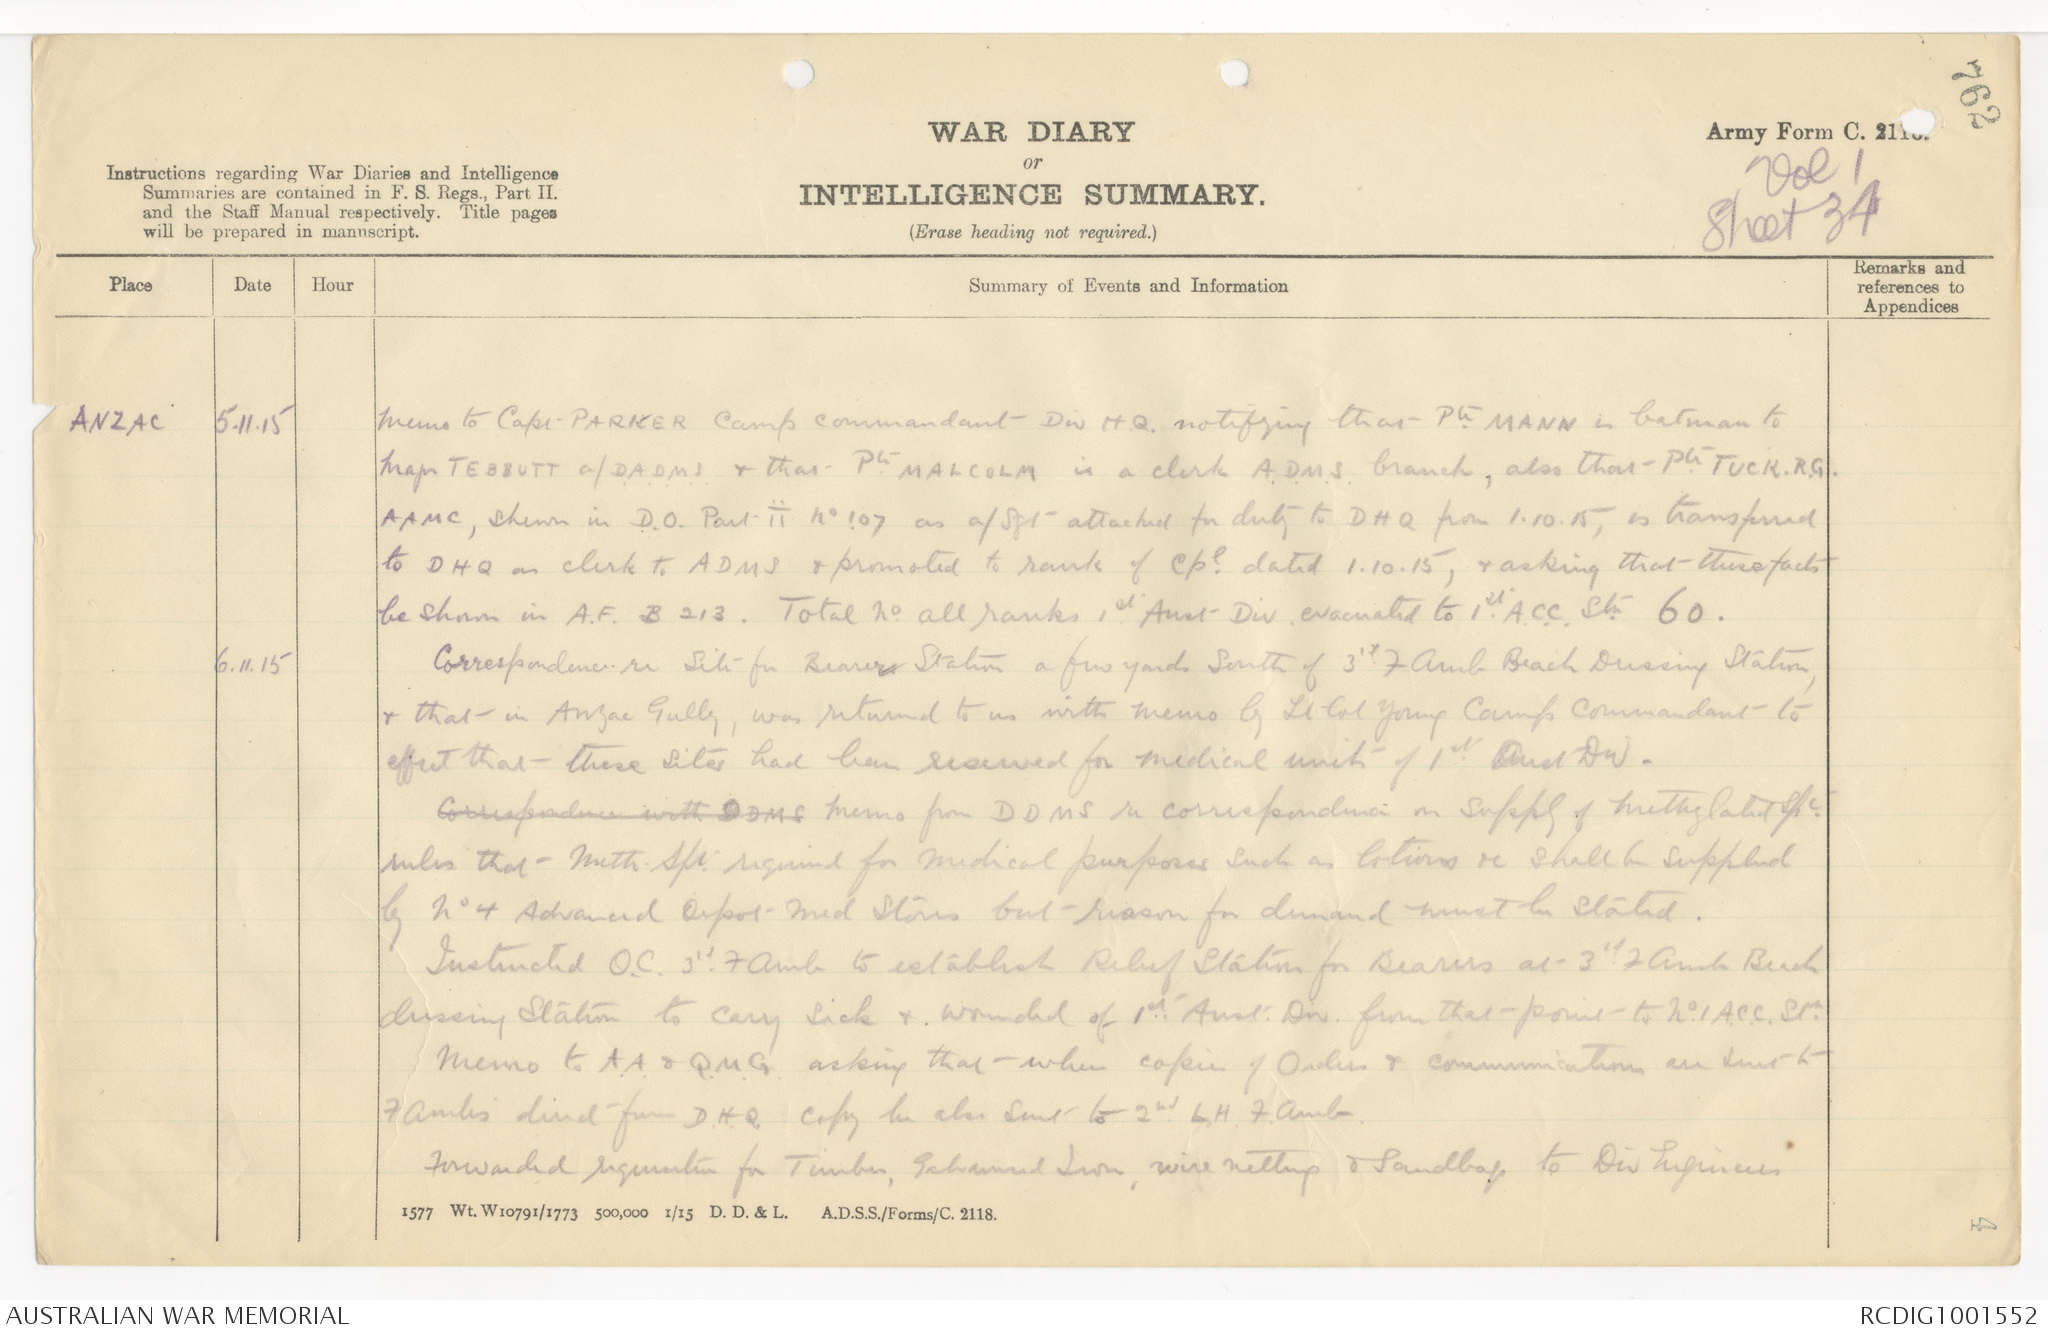 762
WAR DIARY
or
INTELLIGENCE SUMMARY.
(Erase heading not required.)
Army Form C. 2118.
Vol 1
Sheet 34
Instructions regarding War Diaries and Intelligence
Summaries are contained in F. S. Regs., Part II.
and the Staff Manual respectively. Title pages
will be prepared in manuscript.
Place Date Hour Summary of Events and Information Remarks and references to Appendices
ANZAC 5.11.15 Memo to Capt PARKER Camp commandant Div H.Q. notifying that Pte MANN is batman to
Major TEBBUTT a/D.A.D.M.S & that Pte MALCOLM is a clerk A.D.M.S. branch, also that Pte TUCK. R.G.
AAMC, shewn in D.O. Part II No 107 as a/Sgt attached for duty to DHQ from 1.10.15, is transferred
to DHQ as clerk to ADMS & promoted to rank of Cpl. dated 1.10.15, & asking that these facts
be shown in A.F. B 213. Total No all ranks 1st Aust Div. evacuated to 1st. A.C.C. Stn 60.
6.11.15 Correspondence re Site for Bearers Station a few yards South of 3rd F Amb Beach Dressing Station,
& that in Anzac Gully, was returned to us with memo by Lt Col Young Camp Commandant to
effect that these sites had been reserved for medical units of 1st Aust Div.
Correspondence with DDMS Memo from DDMS re correspondence on supply of Methylated Spt.
rules that Meth. Spt. required for medical purposes such as lotions &c shall be supplied
by No 4 Advanced Depot Med Stores but reason for demand must be stated.
Instructed O.C. 3rd. F Amb to establish Relief Station for Bearers at 3rd F Amb Beach
dressing Station to carry sick & wounded of 1st. Aust. Div. from that point to No 1 A.C.C. Stn
Memo to A.A & Q.M.G. asking that when copies of Orders & communications are sent to
F Ambs direct from D.H.Q. copy be also sent to 2nd L.H. F. Amb.
Forwarded requisition for Timber, Galvanised Iron, wire netting & Sandbags to Div Engineers
1577 Wt. W10791/1773 500,000 1/15 D. D. & L. A.D.S.S./Forms/C. 2118.
4
AUSTRALIAN WAR MEMORIAL RCDIG1001552